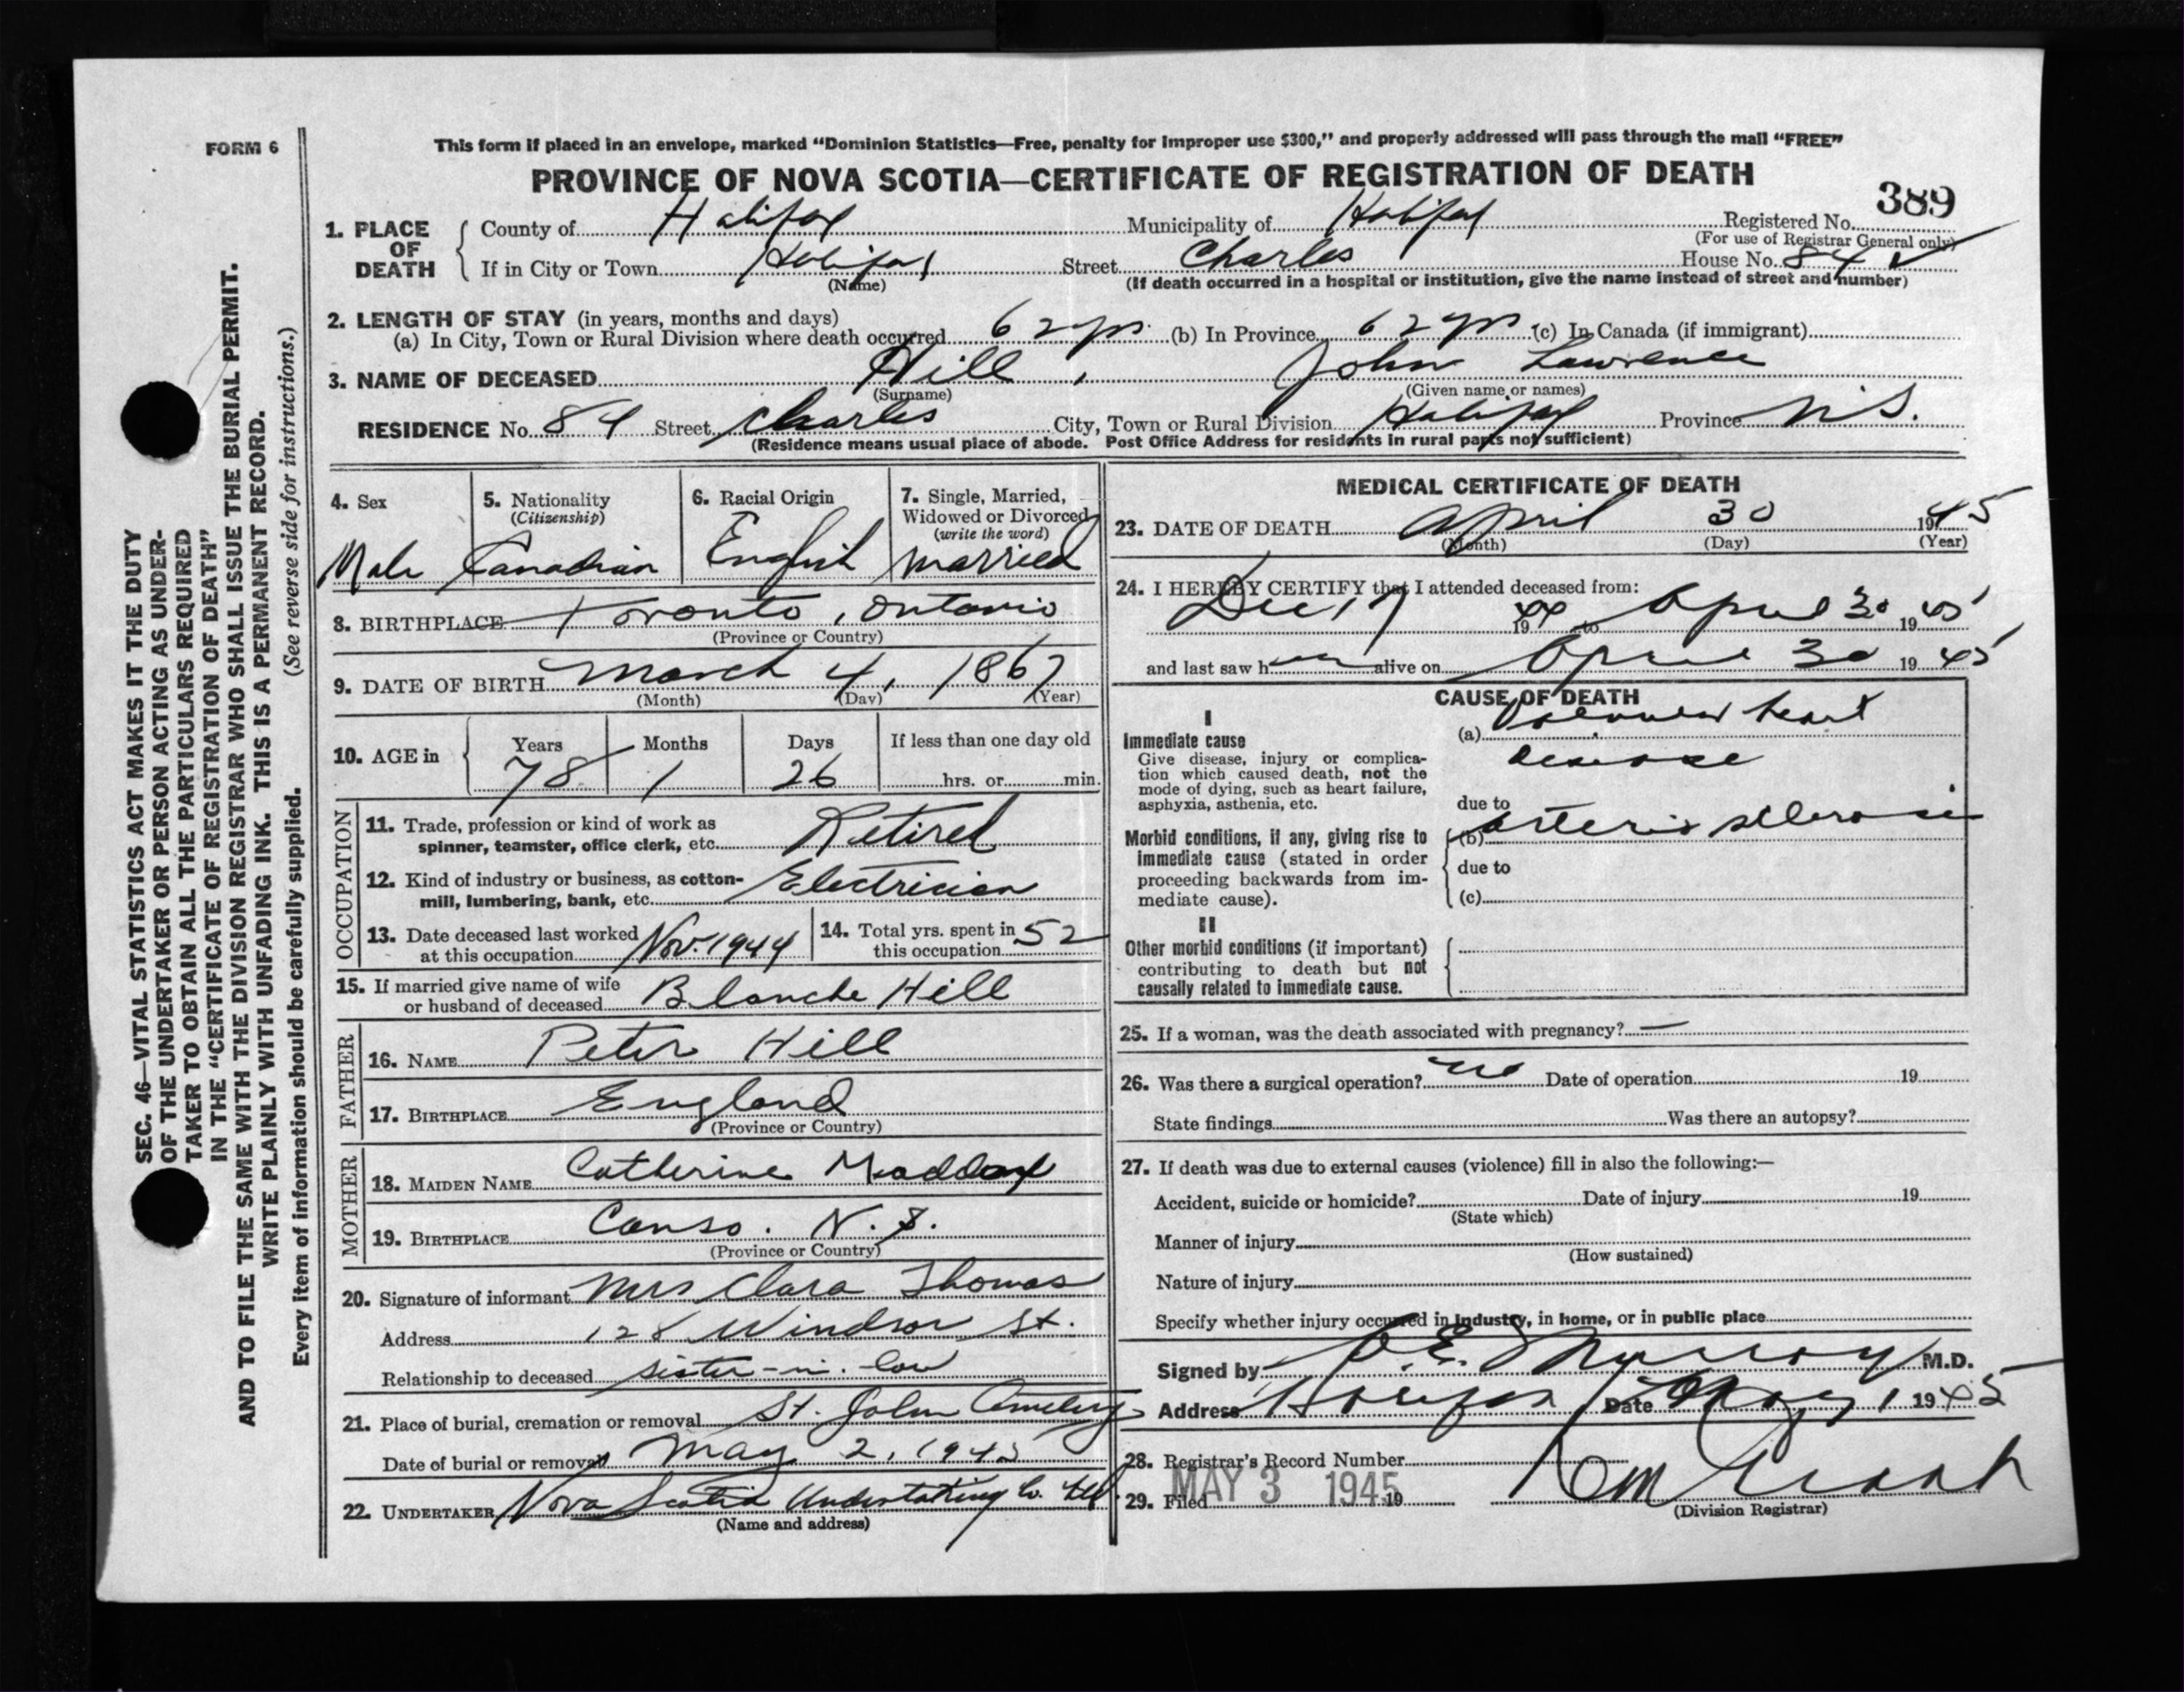 FORM 6
This form if placed in an envelope, marked “Dominion Statistics—Free, penalty for improper use $300,” and properly addressed will pass through the mail “FREE”
PROVINCE OF NOVA SCOTIA—CERTIFICATE OF REGISTRATION OF DEATH
389
1. PLACE OF DEATH
County of Halifax Municipality of Halifax Registered No.
(For use of Registrar General only)
If in City or Town Halifax Street Charles House No. 84
(Name) (If death occurred in a hospital or institution, give the name instead of street and number)
2. LENGTH OF STAY (in years, months and days)
(a) In City, Town or Rural Division where death occurred 62 yrs. (b) In Province 62 yrs (c) In Canada (if immigrant)
3. NAME OF DECEASED Hill, John Lawrence
(Surname) (Given name or names)
RESIDENCE No. 84 Street Charles City, Town or Rural Division Halifax Province N.S.
(Residence means usual place of abode. Post Office Address for residents in rural parts not sufficient)
4. Sex
Male
5. Nationality
(Citizenship)
Canadian
6. Racial Origin
English
7. Single, Married,
Widowed or Divorced
(write the word)
married
8. BIRTHPLACE Toronto, Ontario
(Province or Country)
9. DATE OF BIRTH March 4, 1867
(Month) (Day) (Year)
10. AGE in
Years Months Days If less than one day old
78 1 26 hrs. or min.
OCCUPATION
11. Trade, profession or kind of work as
spinner, teamster, office clerk, etc. Retired
12. Kind of industry or business, as cotton-
mill, lumbering, bank, etc. Electrician
13. Date deceased last worked
at this occupation Nov. 1944
14. Total yrs. spent in
this occupation 52
15. If married give name of wife
or husband of deceased Blanche Hill
FATHER
16. NAME Peter Hill
17. BIRTHPLACE England
(Province or Country)
MOTHER
18. MAIDEN NAME Catherine Maddox
19. BIRTHPLACE Canso. N.S.
(Province or Country)
20. Signature of informant Mrs Clara Thomas
Address 128 Windsor St.
Relationship to deceased sister-in-law
21. Place of burial, cremation or removal St. John Cemetery
Date of burial or removal May 2, 1945
22. UNDERTAKER Nova Scotia Undertaking Co. Ltd.
(Name and address)
MEDICAL CERTIFICATE OF DEATH
23. DATE OF DEATH April 30 1945
(Month) (Day) (Year)
24. I HEREBY CERTIFY that I attended deceased from:
Dec 17 1944 to April 30 1945
and last saw h alive on April 30 1945
CAUSE OF DEATH
I
Immediate cause
Give disease, injury or complica-
tion which caused death, not the
mode of dying, such as heart failure,
asphyxia, asthenia, etc.
(a) heart
disease
due to
Morbid conditions, if any, giving rise to
immediate cause (stated in order
proceeding backwards from im-
mediate cause).
(b) arterio sclerosis
due to
(c)
II
Other morbid conditions (if important)
contributing to death but not
causally related to immediate cause.
25. If a woman, was the death associated with pregnancy? —
26. Was there a surgical operation? no Date of operation 19
State findings Was there an autopsy?
27. If death was due to external causes (violence) fill in also the following:—
Accident, suicide or homicide? Date of injury 19
(State which)
Manner of injury
(How sustained)
Nature of injury
Specify whether injury occurred in industry, in home, or in public place
Signed by M.D.
Address Halifax Date May 1 1945
28. Registrar's Record Number
29. Filed MAY 3 1945 19
(Division Registrar)
SEC. 46—VITAL STATISTICS ACT MAKES IT THE DUTY
OF THE UNDERTAKER OR PERSON ACTING AS UNDER-
TAKER TO OBTAIN ALL THE PARTICULARS REQUIRED
IN THE “CERTIFICATE OF REGISTRATION OF DEATH”
AND TO FILE THE SAME WITH THE DIVISION REGISTRAR WHO SHALL ISSUE THE BURIAL PERMIT.
WRITE PLAINLY WITH UNFADING INK. THIS IS A PERMANENT RECORD.
Every item of information should be carefully supplied. (See reverse side for instructions.)